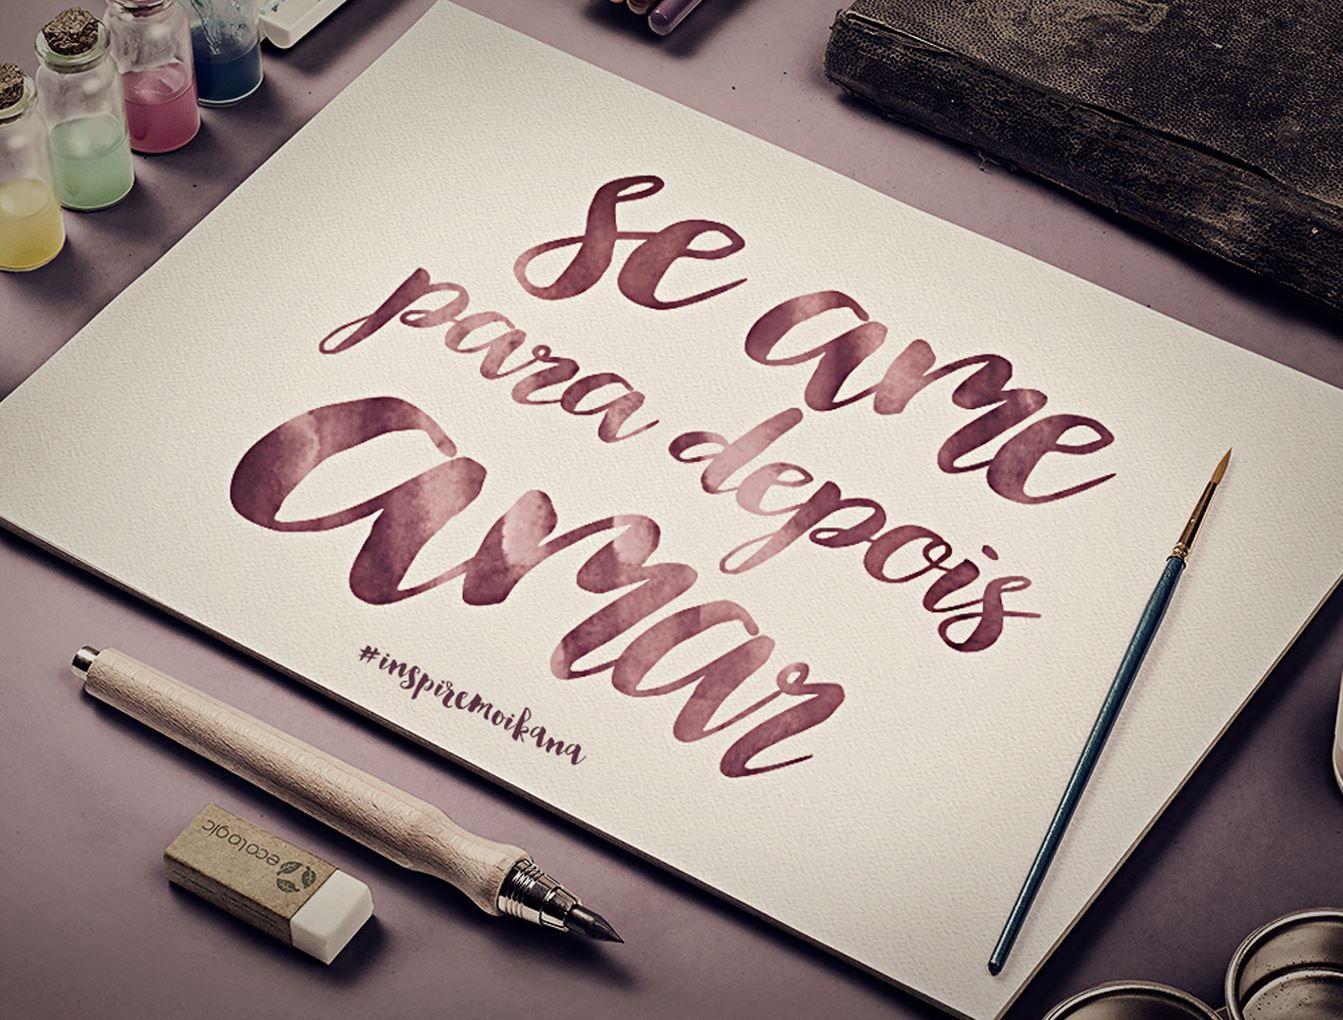 se ame
para depois
amar
#inspiremoikana
ecologic